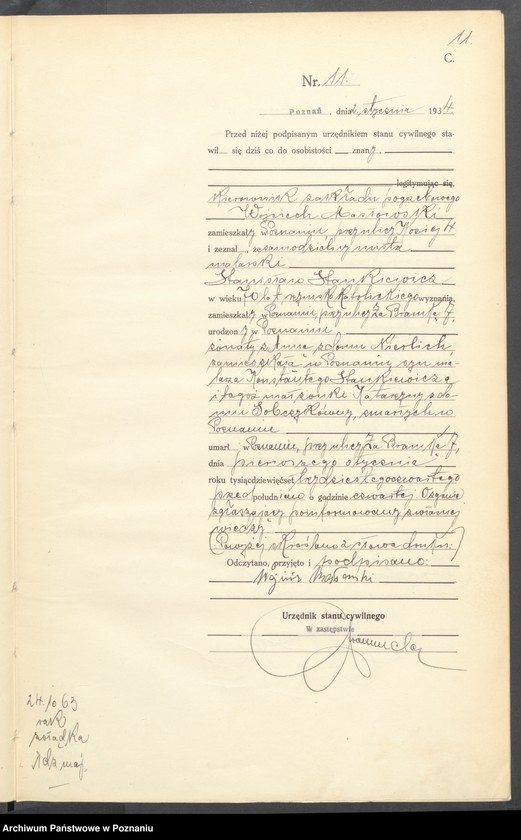 11.
C.
Nr. 11.
Poznań, dnia 2 stycznia 1934.
Przed niżej podpisanym urzędnikiem stanu cywilnego sta-
wił się dziś co do osobistości znany,
legitymując się,
Kierownik zakładu pogrzebowego
Wojciech
zamieszkały w Poznaniu, przy ulicy 4
i zeznał, że samodzielny mistrz
malarski
Stanisław Stankiewicz
w wieku 70 lat, rzymsk. Katolickiego wyznania,
zamieszkały w Poznaniu, przy ulicy Za Bramką 7,
urodzony w Poznaniu,
żonaty z Anną z domu
zamieszkałą w Poznaniu, syn ma-
larza Konstantego Stankiewicza
i tegoż małżonki Katarzyny z do-
mu Sobczakówny, zmarłych w
Poznaniu
umarł w Poznaniu, przy ulicy Za Bramką 7,
dnia pierwszego stycznia
roku tysiącdziewięćset trzydziestego czwartego
przed południem o godzinie czwartej. O zgonie
zgłaszający poinformowany z własnej
wiedzy
(Powyżej skreślono 2 słowa druku.)
Odczytano, przyjęto i podpisano:
Urzędnik stanu cywilnego
W zastępstwie
24.10 63
rak
żołądka
Archiwum Państwowe w Poznaniu